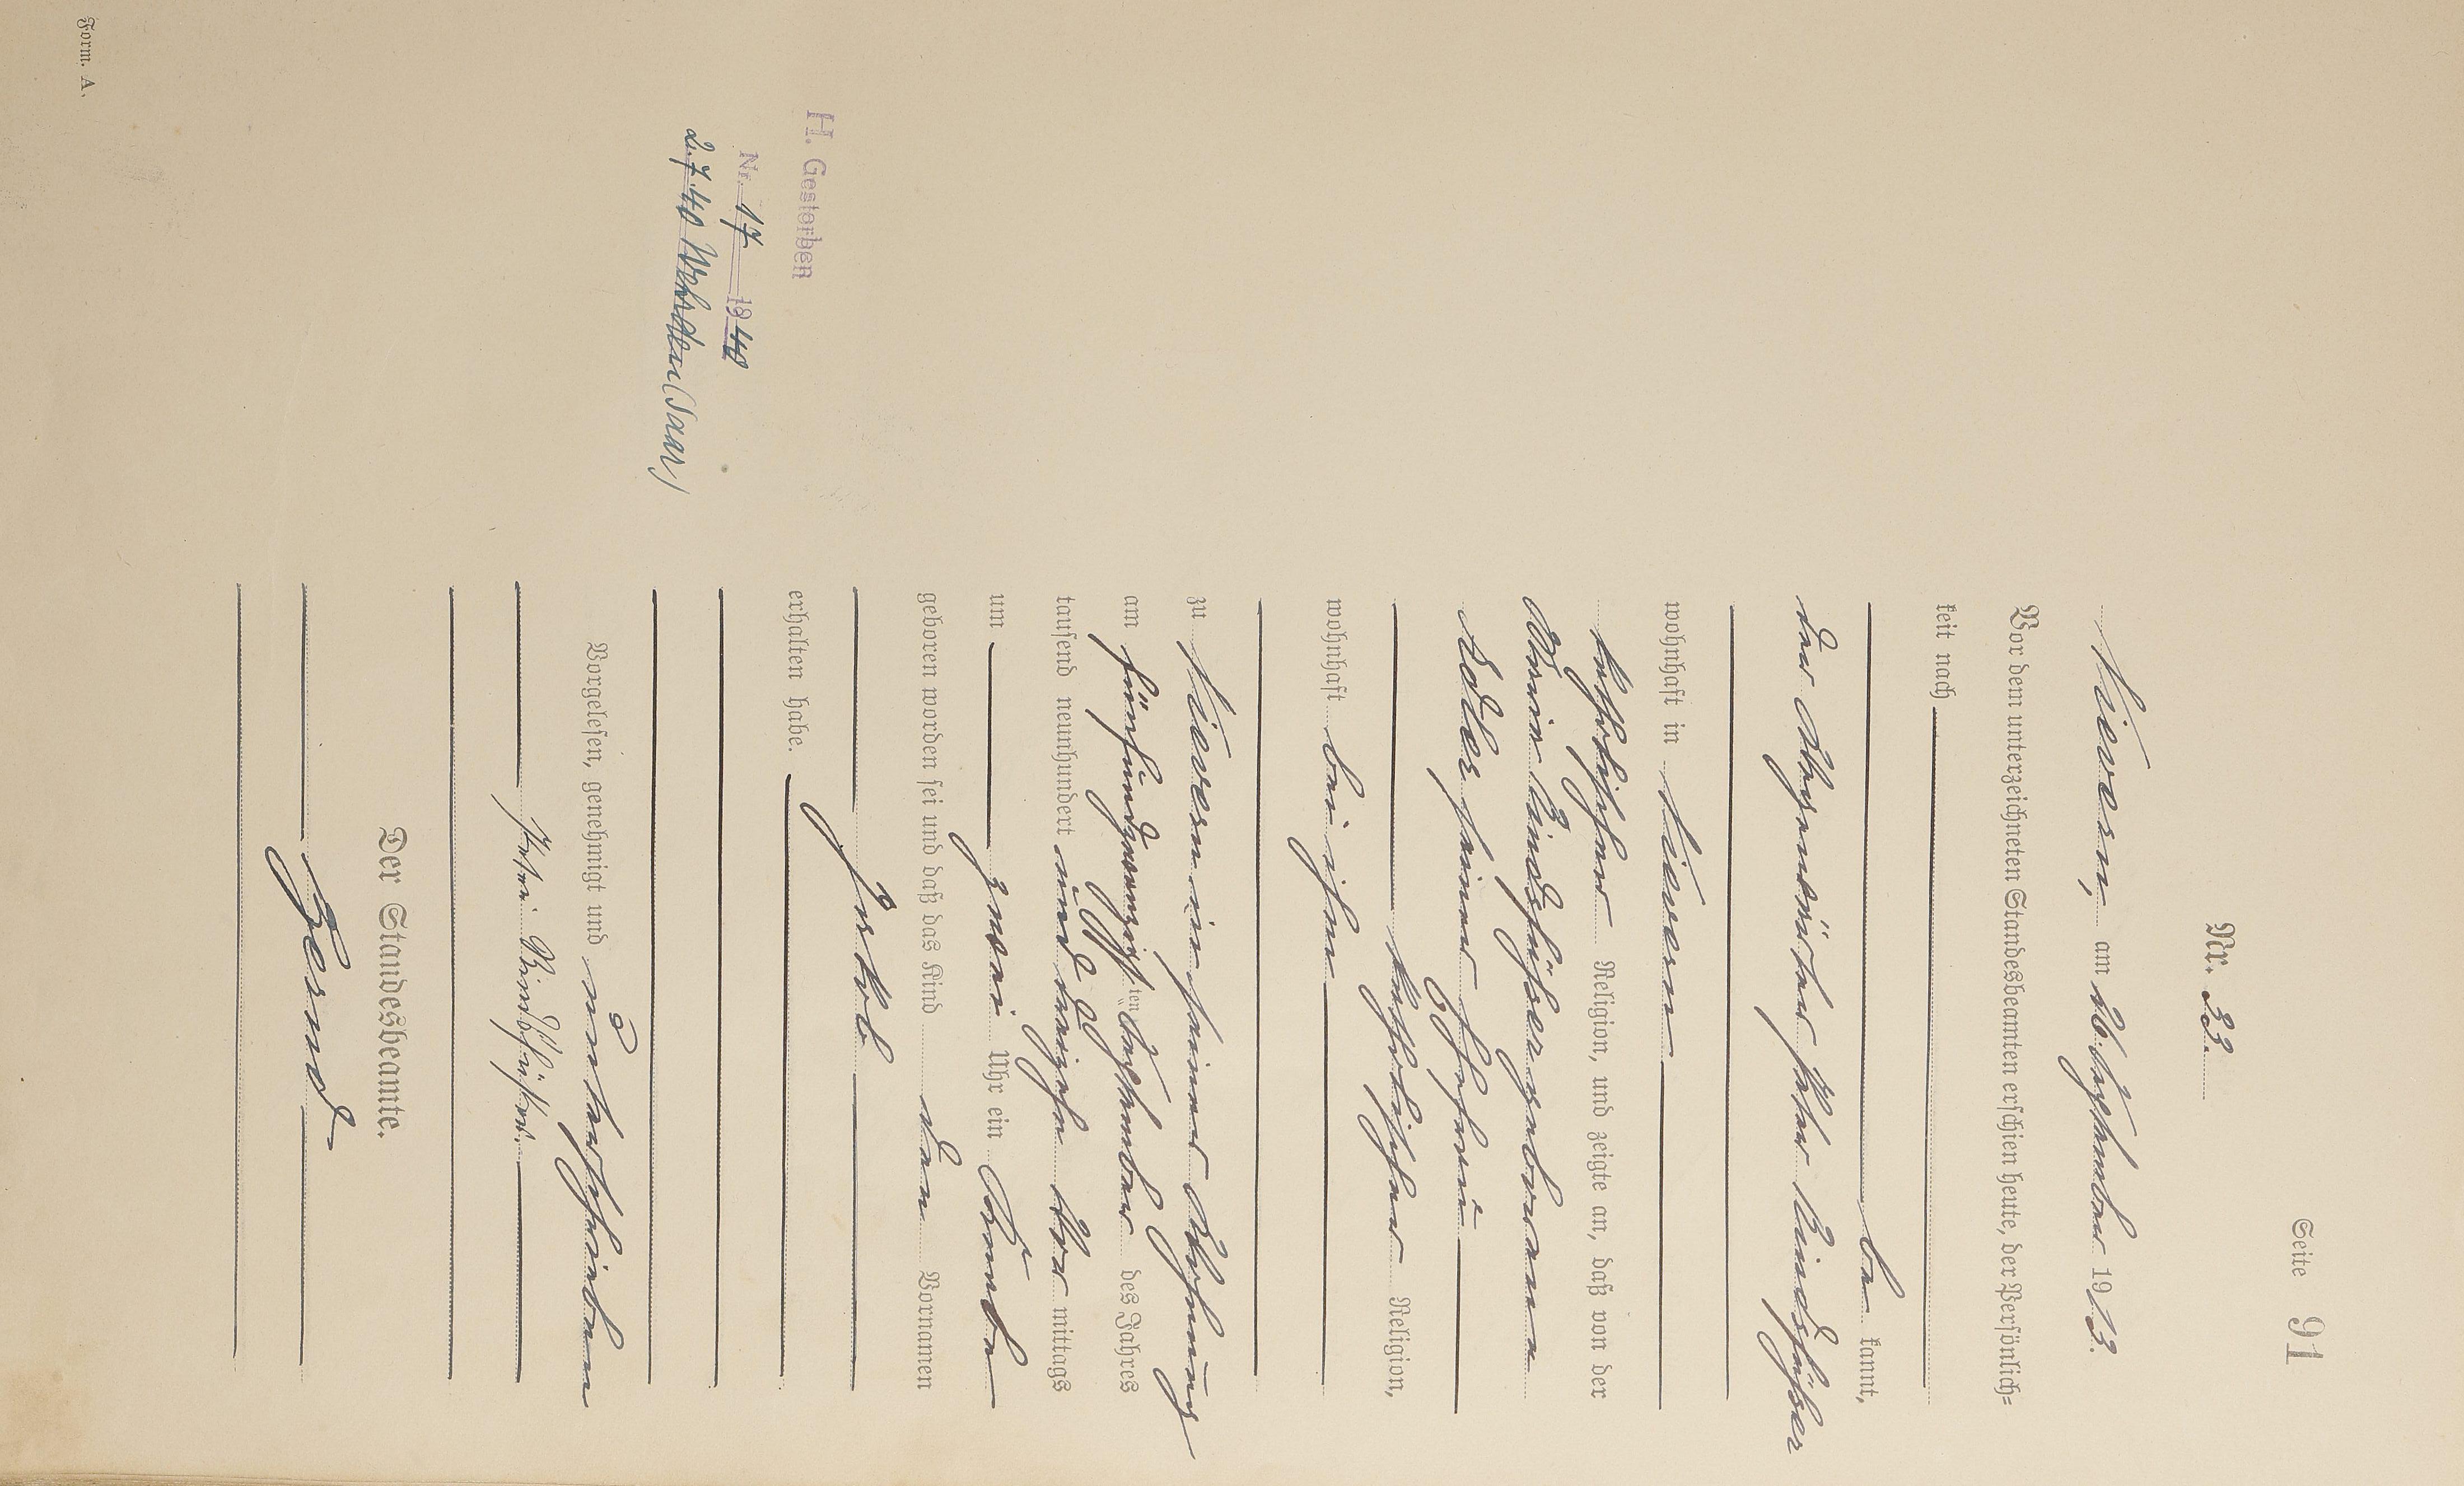 Seite 91
Nr. 33.
Nievern, am 26. September 1913.
Vor dem unterzeichneten Standesbeamten erschien heute, der Persönlich-
keit nach
be kannt,
der Peter
wohnhaft in Nievern
katholischer Religion, und zeigte an, daß von der
Maria geborenen
seiner Ehefrau
katholischer Religion,
wohnhaft bei ihm
zu Nievern in seiner Wohnung
am fünfundzwanzigsten September des Jahres
tausend neunhundert und dreizehn Vor mittags
um zwei Uhr ein Knabe
geboren worden sei und daß das Kind den Vornamen
Jakob
erhalten habe.
Vorgelesen, genehmigt und unterschrieben
Peter
Der Standesbeamte.
H. Gestorben
Nr. 17 1940
2.7.40 Wehrden (Saar)
Form. A.